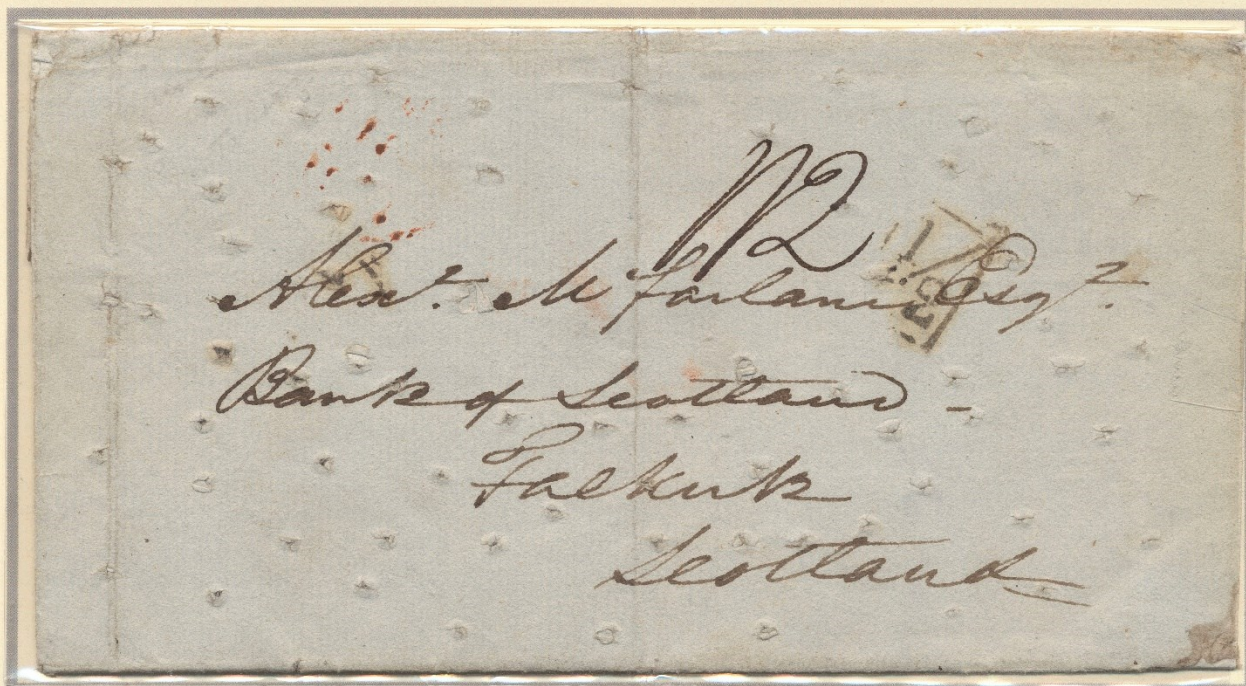 1/12
Alexr. McFarlane Esqr.
Bank of Scotland -
Falkirk
Scotland